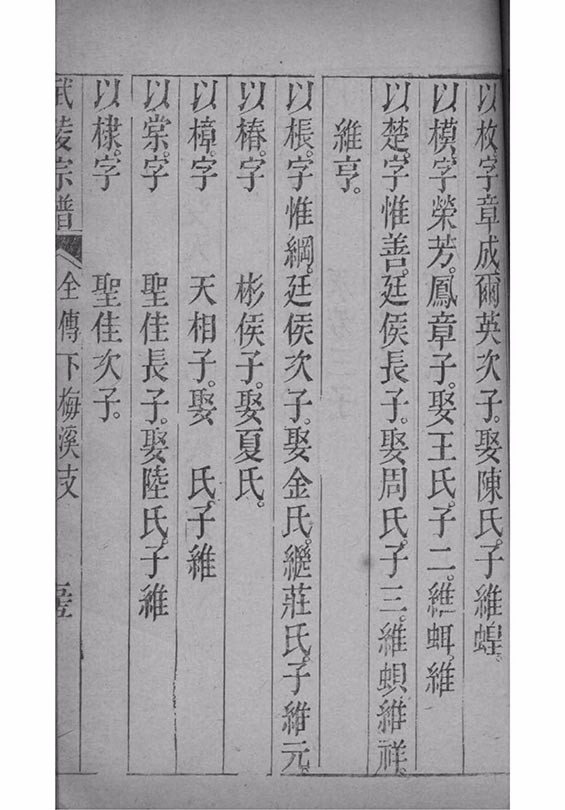 以枚字章成爾英次子。娶陳氏。子維蝗。
以模字榮芳。鳳章子。娶王氏。子二。維蛘。維
以楚。字惟善。廷侯長子。娶周氏。子三。維蛽維祥。
維亨。
以棖。字惟綱。廷侯次子。娶金氏。繼莊氏。子維元。
以椿。字 彬侯子。娶夏氏。
以樟。字 天相子。娶 氏。子維
以棠。字 聖佳長子。娶陸氏。子維
以棣。字 聖佳次子。
武陵宗譜 全傳下梅溪支